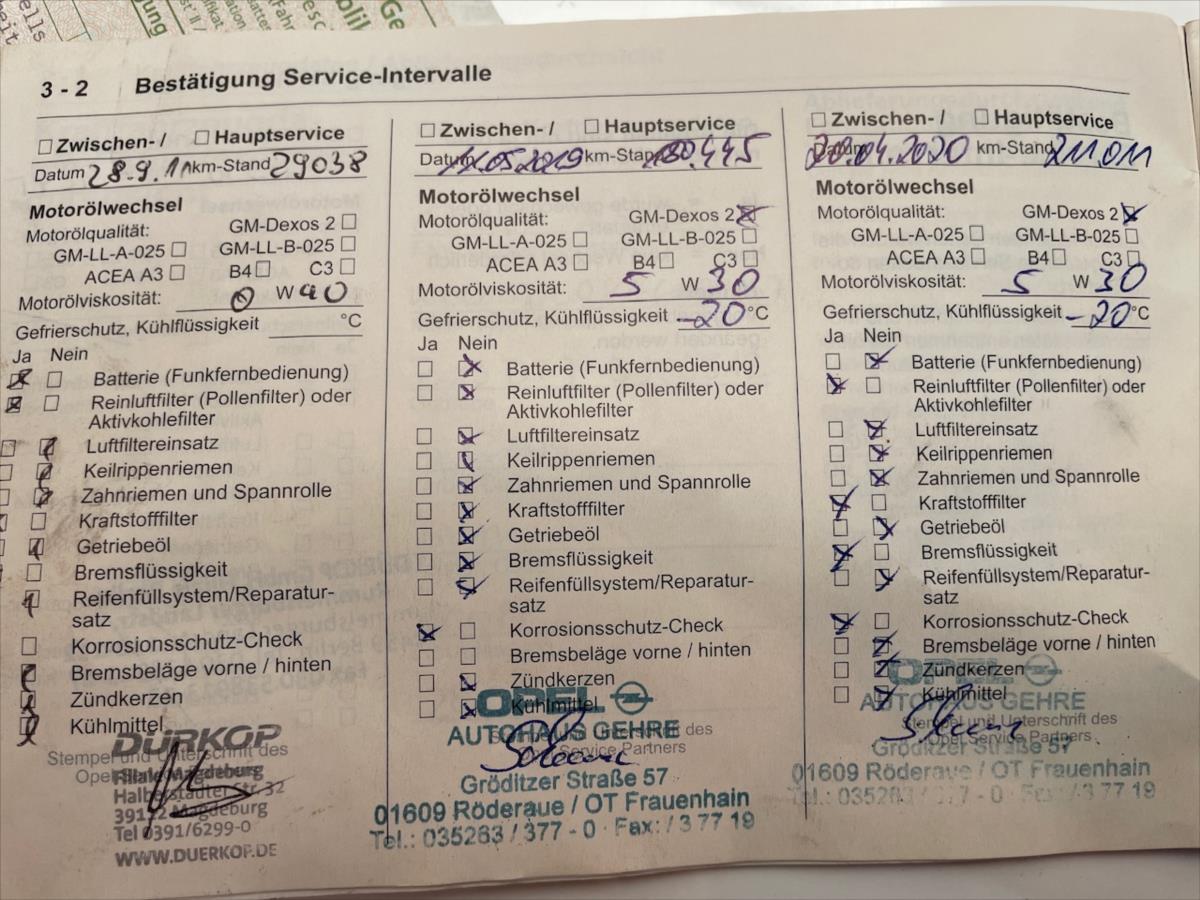 3 - 2 Bestätigung Service-Intervalle
Zwischen- / Hauptservice
Datum 28.9.11 km-Stand 29038
Motorölwechsel
Motorölqualität: GM-Dexos 2
GM-LL-A-025 GM-LL-B-025
ACEA A3 B4 C3
Motorölviskosität: 0 W 40
Gefrierschutz, Kühlflüssigkeit °C
Ja Nein
Batterie (Funkfernbedienung)
Reinluftfilter (Pollenfilter) oder
Aktivkohlefilter
Luftfiltereinsatz
Keilrippenriemen
Zahnriemen und Spannrolle
Kraftstofffilter
Getriebeöl
Bremsflüssigkeit
Reifenfüllsystem/Reparatur-
satz
Korrosionsschutz-Check
Bremsbeläge vorne / hinten
Zündkerzen
Kühlmittel
DÜRKOP
Stempel und Unterschrift des
Opel Service Partners
Filiale Magdeburg
Halberstädter Str. 32
39112 Magdeburg
Tel 0391/6299-0
WWW.DUERKOP.DE
Zwischen- / Hauptservice
Datum 14.05.2019 km-Stand 180.445
Motorölwechsel
Motorölqualität: GM-Dexos 2
GM-LL-A-025 GM-LL-B-025
ACEA A3 B4 C3
Motorölviskosität: 5 W 30
Gefrierschutz, Kühlflüssigkeit -20 °C
Ja Nein
Batterie (Funkfernbedienung)
Reinluftfilter (Pollenfilter) oder
Aktivkohlefilter
Luftfiltereinsatz
Keilrippenriemen
Zahnriemen und Spannrolle
Kraftstofffilter
Getriebeöl
Bremsflüssigkeit
Reifenfüllsystem/Reparatur-
satz
Korrosionsschutz-Check
Bremsbeläge vorne / hinten
Zündkerzen
Kühlmittel
OPEL
AUTOHAUS GEHRE
Stempel und Unterschrift des
Opel Service Partners
Gröditzer Straße 57
01609 Röderaue / OT Frauenhain
Tel.: 035263 / 377 - 0 · Fax: / 3 77 19
Zwischen- / Hauptservice
Datum 20.04.2020 km-Stand 211.011
Motorölwechsel
Motorölqualität: GM-Dexos 2
GM-LL-A-025 GM-LL-B-025
ACEA A3 B4 C3
Motorölviskosität: 5 W 30
Gefrierschutz, Kühlflüssigkeit -20 °C
Ja Nein
Batterie (Funkfernbedienung)
Reinluftfilter (Pollenfilter) oder
Aktivkohlefilter
Luftfiltereinsatz
Keilrippenriemen
Zahnriemen und Spannrolle
Kraftstofffilter
Getriebeöl
Bremsflüssigkeit
Reifenfüllsystem/Reparatur-
satz
Korrosionsschutz-Check
Bremsbeläge vorne / hinten
Zündkerzen
Kühlmittel
OPEL
AUTOHAUS GEHRE
Stempel und Unterschrift des
Opel Service Partners
Gröditzer Straße 57
01609 Röderaue / OT Frauenhain
Tel.: 035263 / 377 - 0 · Fax: / 3 77 19